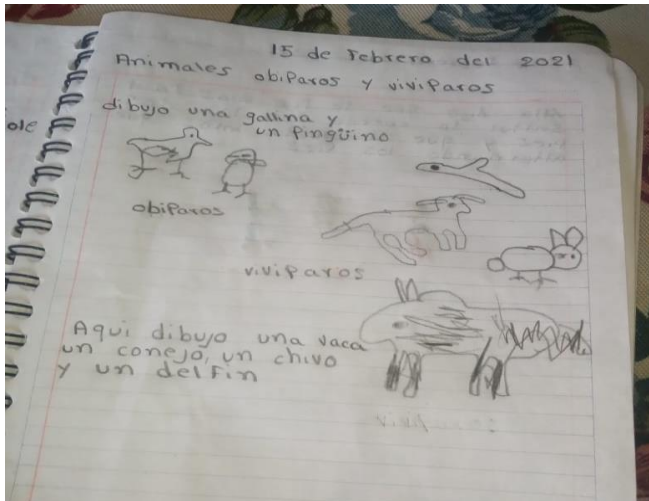 15 de Febrero del 2021
Animales obiparos y viviparos
dibujo una gallina y
un Pingüino
obiparos
viviparos
Aqui dibujo una vaca
un conejo, un chivo
y un delfin